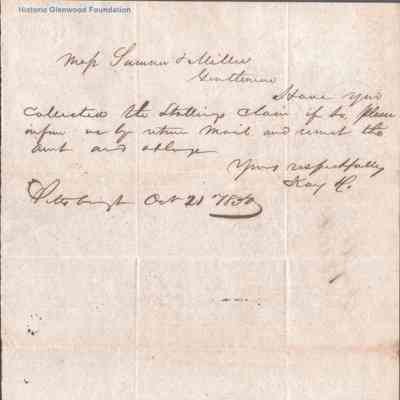 Historic Glenwood Foundation
Mess & Miller
Gentlemen
Have you
Collected the Stallings Claim if so, Please
infom us by return Mail and remit the
amt and oblige
Yours respectfully
Kay
Pittsburgh Oct 21